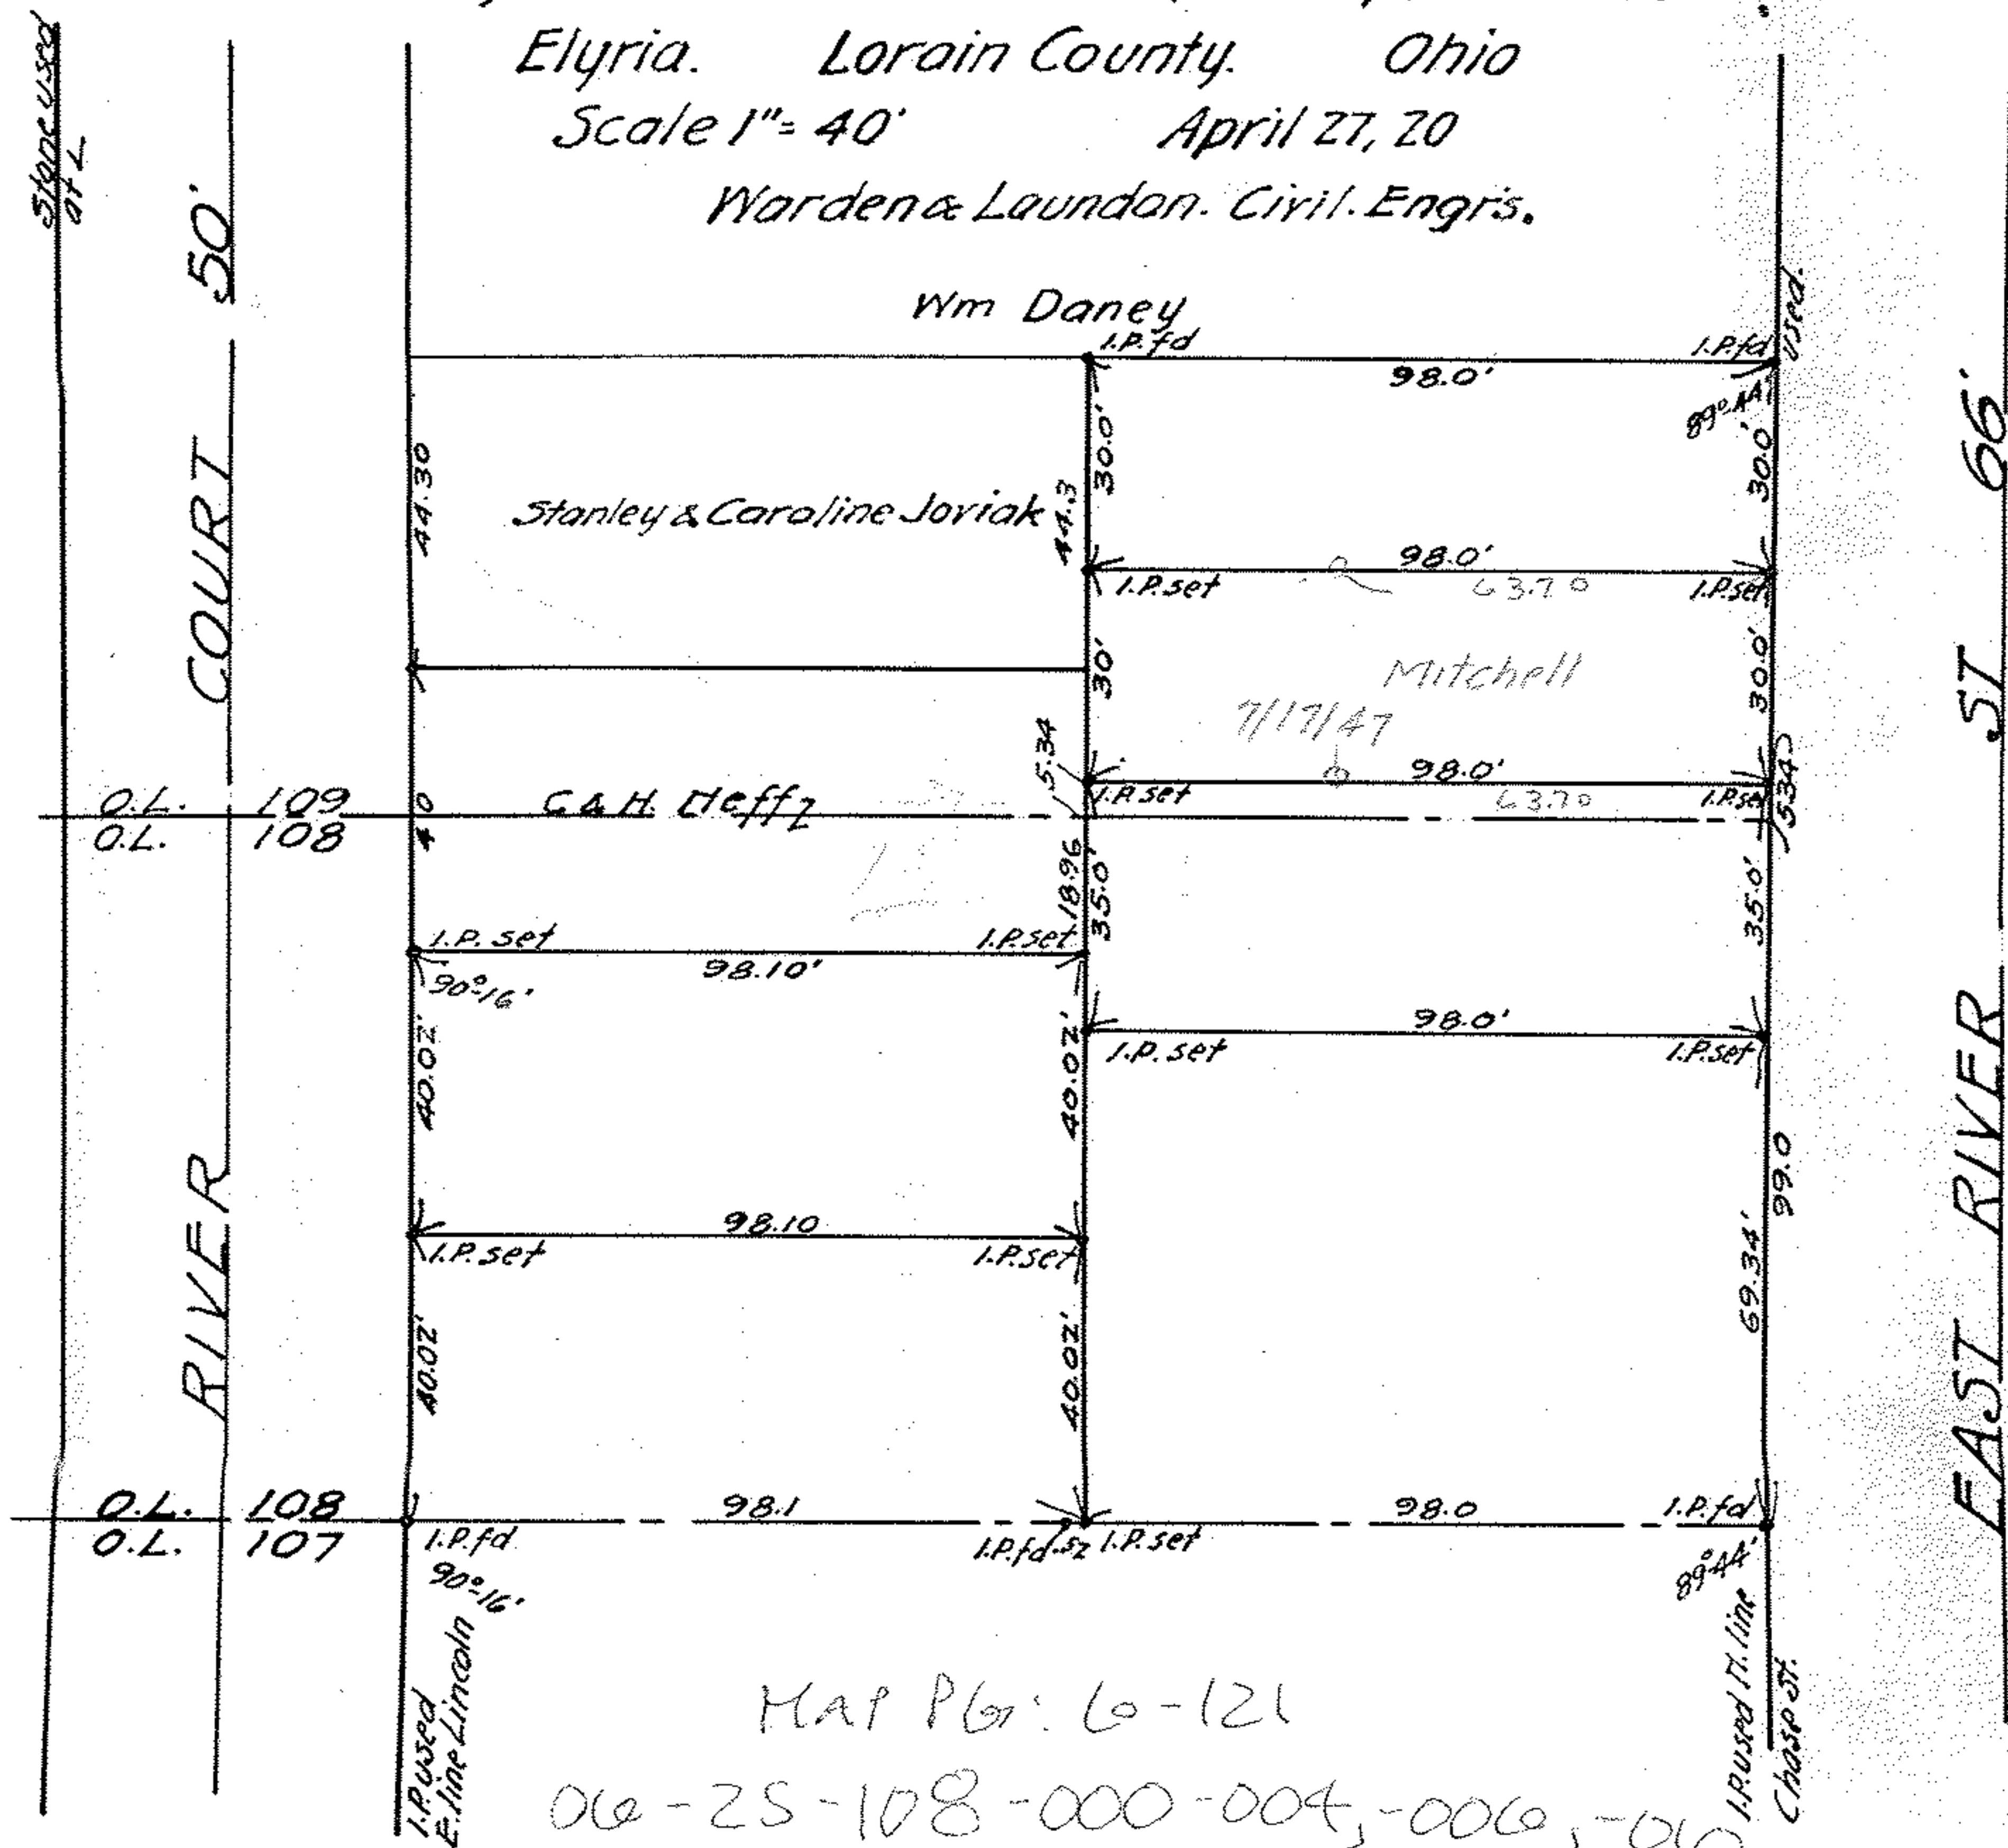 Elyria. Lorain County. Ohio
Scale 1"= 40' April 27, 20
Warden & Laundon. Civil. Engrs.
Stone used
at L
RIVER COURT 50'
EAST RIVER ST 66'
Wm Daney
I.P.fd I.P.fd used.
98.0'
89°44'
44.30
30.0'
30.0'
Stanley & Caroline Joviak
44.3
98.0'
I.P.set 63.70 I.P.set
30'
30.0'
Mitchell
7/17/47
5.34
98.0'
I.P.set 63.70 I.P.set
5.34
O.L. 109
O.L. 108
40
C & H. Neffz
18.96
35.0'
35.0'
I.P. set I.P.set
98.10'
90°16'
98.0'
I.P. set I.P.set
40.02'
40.02'
99.0
69.34'
98.10
I.P.set I.P.set
40.02'
40.02'
O.L. 108
O.L. 107
98.1 98.0 I.P.fd
I.P.fd I.P.fd .52 I.P.set
90°16'
89°44'
I.P.used
E.line Lincoln
I.P.used N.line
Chase St.
MAP PG: 6-121
06-25-108-000-004, -006, -010